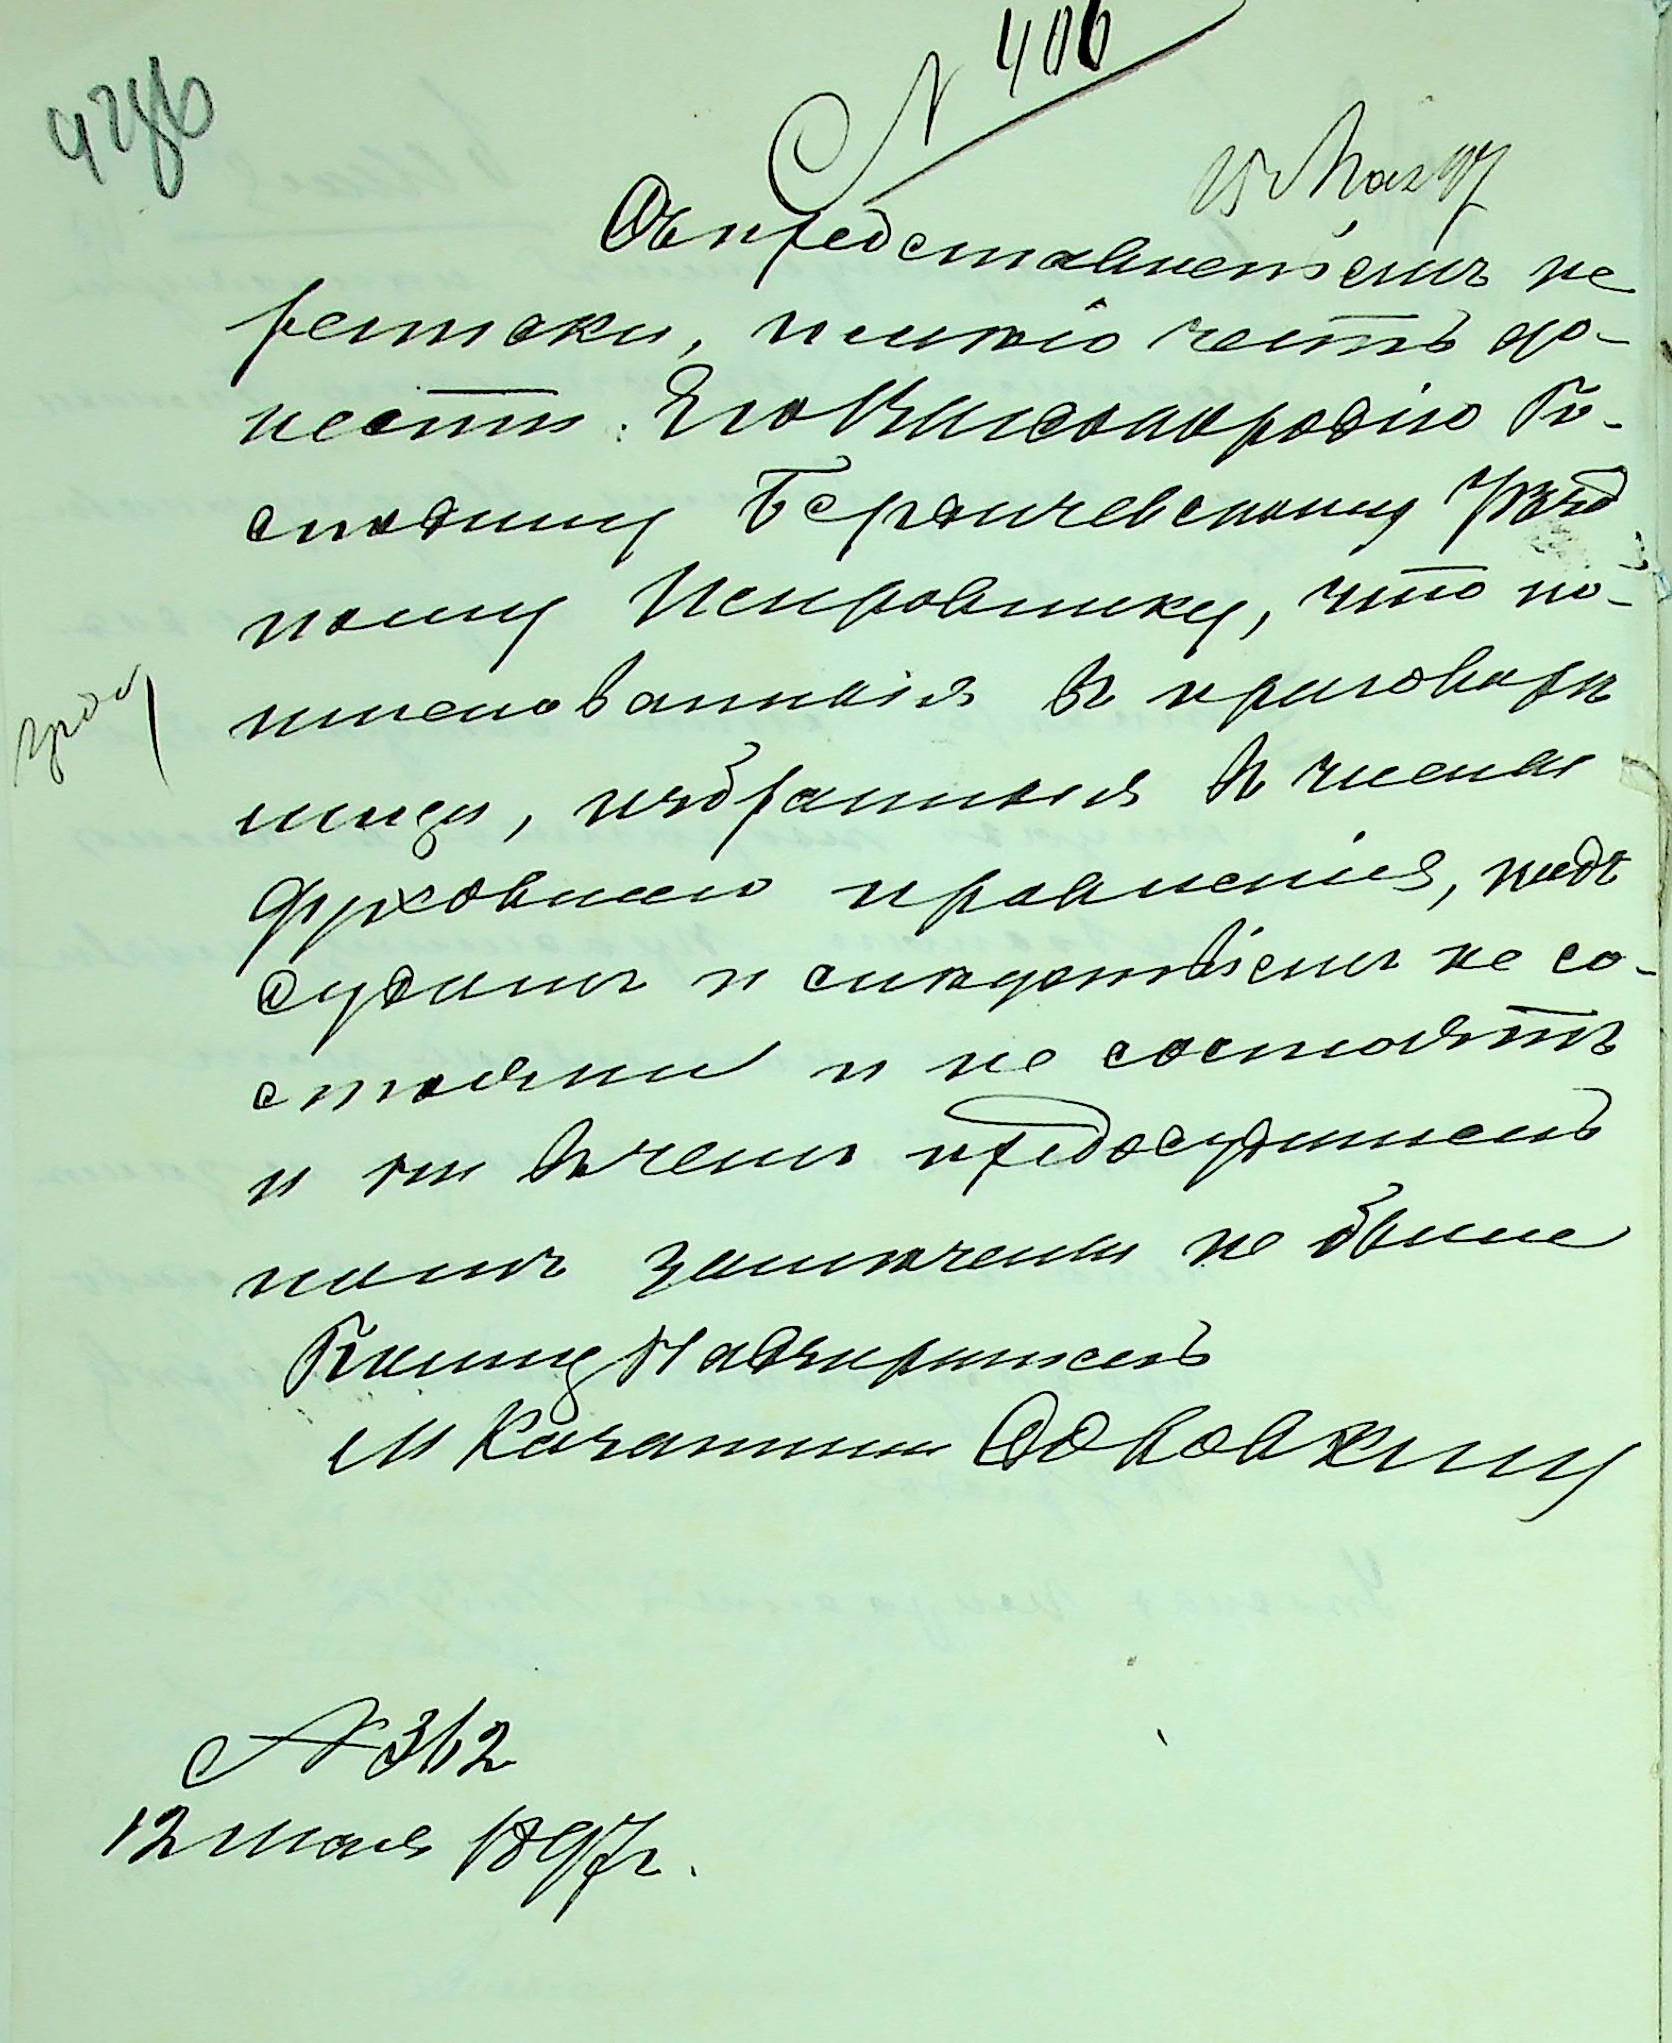 № 406
15 Мая 97
Съ представленіемъ пе
реписки, имѣю честь до-
нести Его Высокородію Го-
сподину Бердичевскому Уѣзд
ному Исправнику, что по-
именованныя въ приговорѣ
лица, избранныя въ члены
духовнаго правленія, подъ
судомъ и слѣдствіемъ не со-
стояли и не состоятъ
и ни въ чемъ предосудитель
номъ замѣчены не были
Полиц Надзиратель
м Казатинъ
№ 362
12 мая 1897 г.